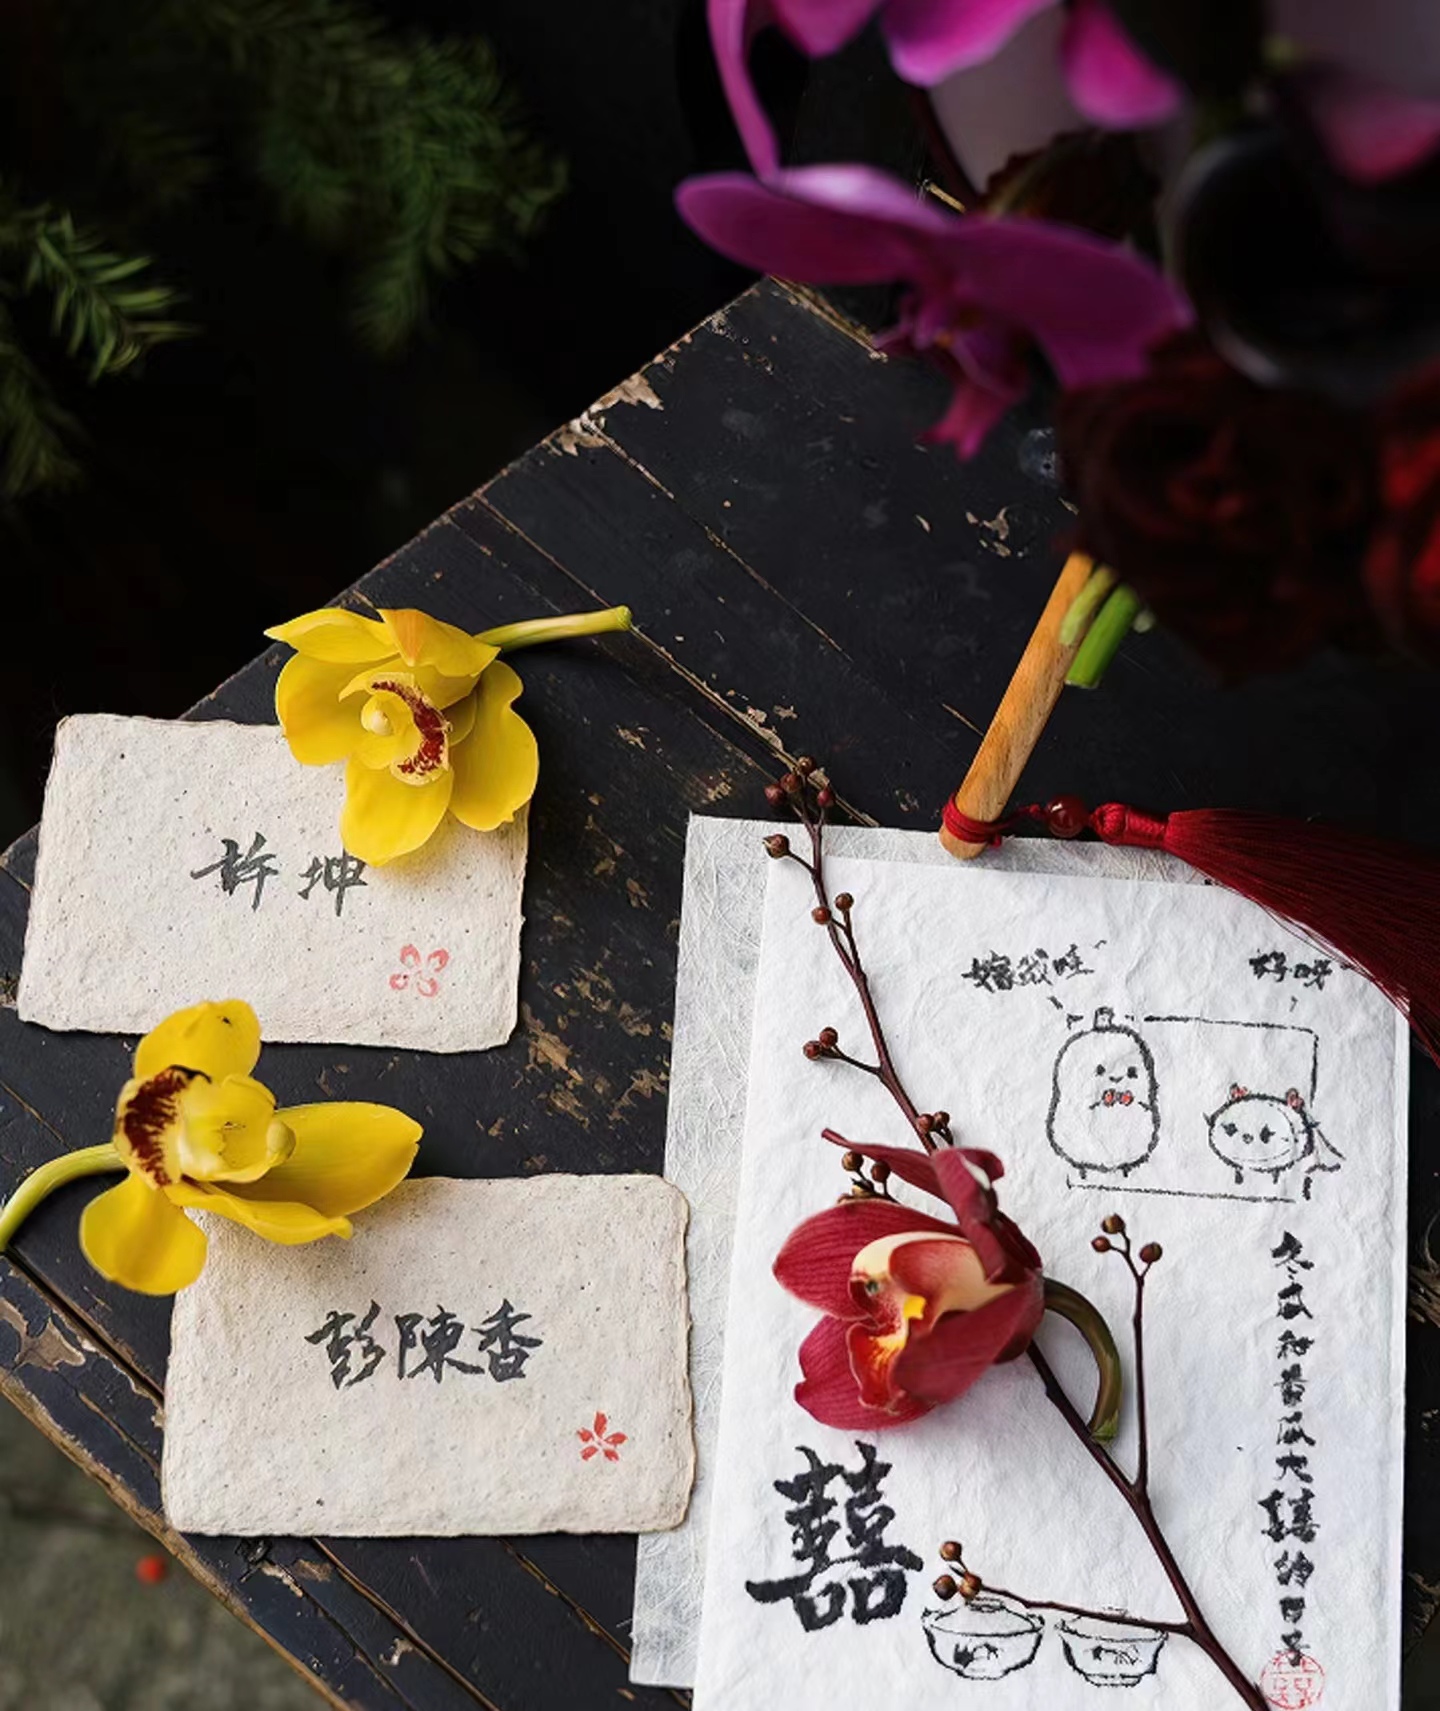 許坤
彭陳香
嫁我哇
好呀
冬瓜和香瓜大囍的日子
囍